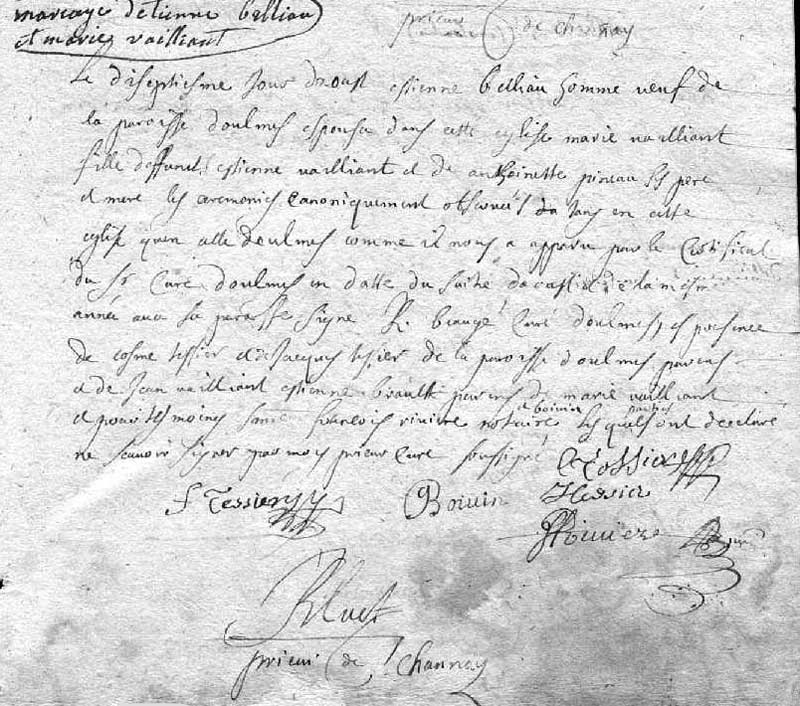 mariage detienne belliau
et marie vailliant
prieur de channay
Le diseptiesme Jour daoust estienne belliau homme veuf de
la paroisse doulmes espousa dans cette eglise marie vailliant
fille deffunct estienne vailliant et de anthoinette pineau ses pere
et mere les ceremonies canoniquement observées tans en cette
eglise quen celle doulmes comme il nous a apparu par le Certificat
du Sr Curé doulmes en datte du de la mesme
année avec sa signé R. beaugé Curé doulmes, es presence
de cosme tessier et de Jacques tessier de la paroisse doulmes parens
et de Jean vailliant estienne brault parens de marie vailliant
et pour tesmoins francois riviere notaire et boivin lesquels parties ont declaré
ne scavoir signer par mois prieur Curé soussigné
C Tessier
J Tessier Boivin Tessier
Riviere
prieur de Channay